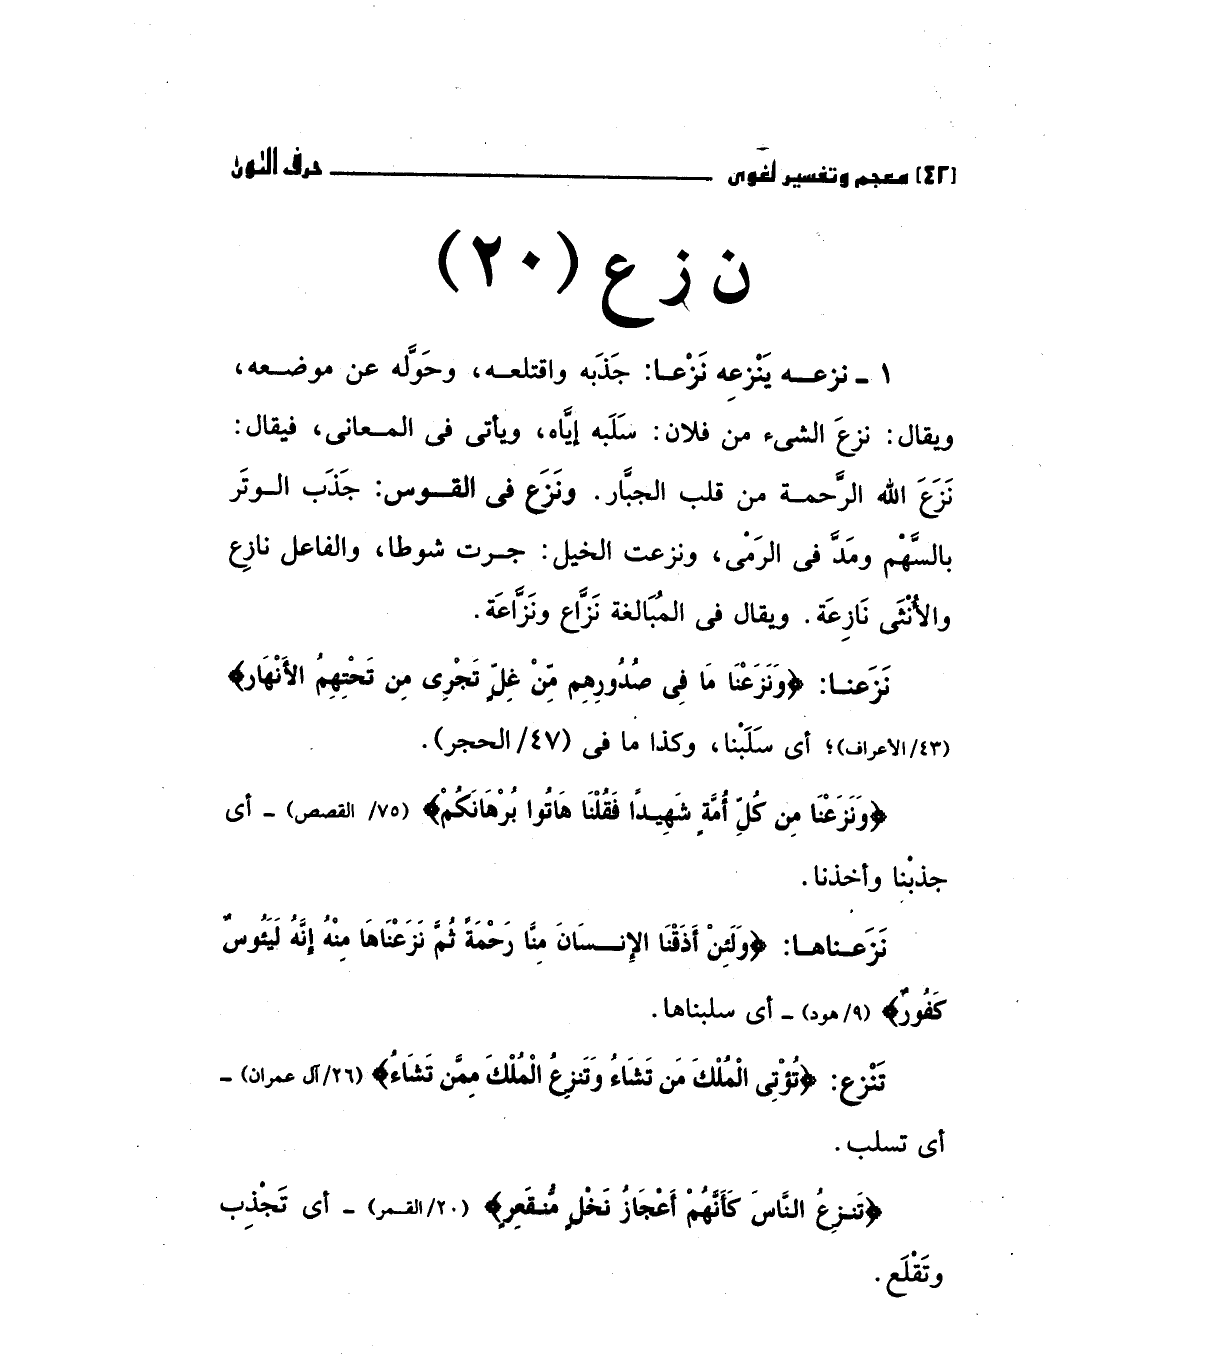 [٤٢] معجم وتفسير لغوى ــــــــ حرف النون
ن ز ع (٢٠)
١ ـ نزعـــه يَنْزِعه نَزْعـا: جَذَبَه واقتلعــه، وحَوَّله عن موضــعه،
ويقال: نزعَ الشىء من فلان: سَلَبه إيَّاه، ويأتى فى المــعانى، فيقال:
نَزَعَ الله الرَّحمــة من قلب الجبَّار. ونَزَع فى القــوس: جَذَب الــوتَر
بالسَّهْم ومَدَّ فى الرَمْى، ونزعت الخيل: جــرت شوطا، والفاعل نازِع
والأُنْثَى نَازِعَة. ويقال فى المُبَالغة نَزَّاع ونَزَّاعَة.
نَزَعنــا: ﴿وَنَزَعْنَا مَا فِى صُدُورِهِم مِّنْ غِلٍّ تَجْرِى مِن تَحْتِهِمُ الأَنْهَار﴾
(٤٣/ الأعراف)؛ أى سَلَبْنا، وكذا ما فى (٤٧/ الحجر).
﴿وَنَزَعْنَا مِن كُلِّ أُمَّةٍ شَهِيـدًا فَقُلْنَا هَاتُوا بُرْهَانَكُمْ﴾ (٧٥/ القصص) ـ أى
جذبْنا وأخذنا.
نَزَعـناهـا: ﴿وَلَئِنْ أَذَقْنَا الإِنــسَانَ مِنَّا رَحْمَةً ثُمَّ نَزَعْنَاهَا مِنْهُ إِنَّهُ لَيَئُوسٌ
كَفُورٌ﴾ (٩/ هود) ـ أى سلبناها.
تَنْزِع: ﴿تُؤْتِى الْمُلْكَ مَن تَشَاءُ وَتَنزِعُ الْمُلْكَ مِمَّن تَشَاءُ﴾ (٢٦/ آل عمران) ـ
أى تسلب.
﴿تَنـزِعُ النَّاسَ كَأَنَّهُمْ أَعْجَازُ نَخْلٍ مُّنـقَعِرٍ﴾ (٢٠/ القـمر) ـ أى تَجْذِب
وتَقْلَع.